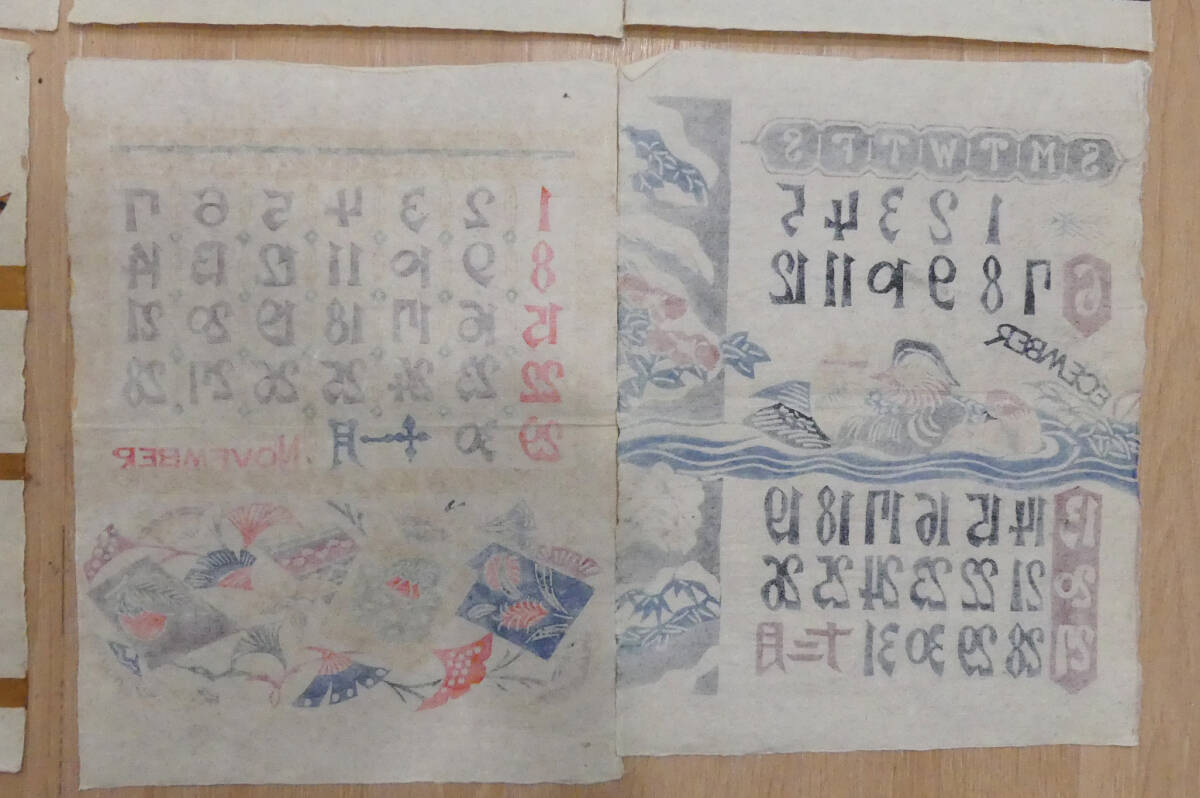 1 2 3 4 5 6 7
8 9 10 11 12 13 14
15 16 17 18 19 20 21
22 23 24 25 26 27 28
29 30 十一月 NOVEMBER
S M T W T F S
1 2 3 4 5
6 7 8 9 10 11 12
DECEMBER
13 14 15 16 17 18 19
20 21 22 23 24 25 26
27 28 29 30 31 十二月